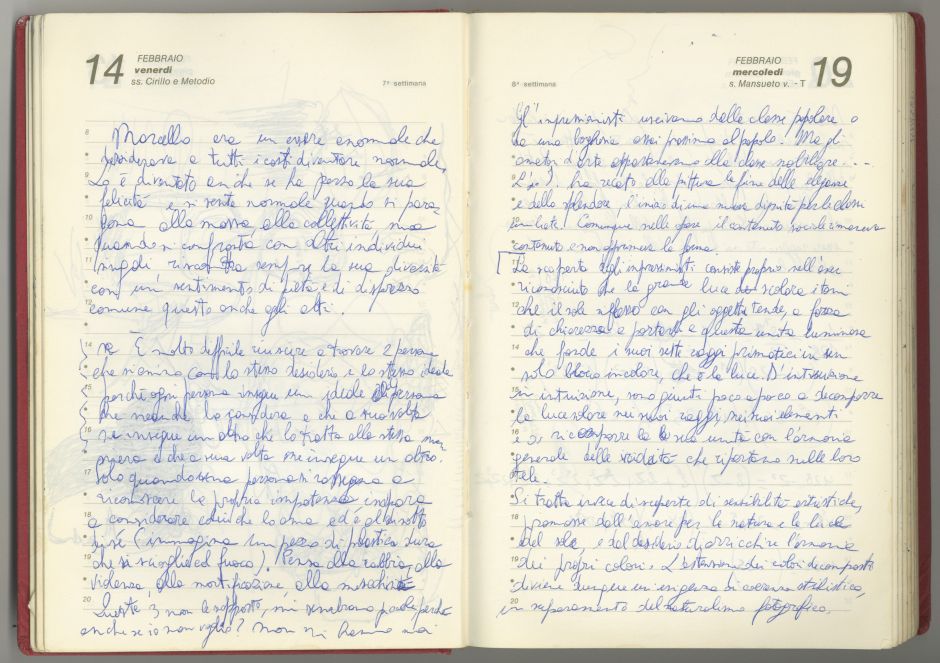 14 FEBBRAIO
venerdì
ss. Cirillo e Metodio
7ª settimana
8
Marcello era un essere anormale che
desiderava a tutti i costi diventare normale,
9
Lo è diventato anche se ha perso la sua
felicità e si sente normale quando si para-
10
gona alla massa alla collettività ma
quando si confronta con altri individui
11
singoli, riscontra sempre la sua diversità
con un sentimento di pietà e di disprezzo
12
comune questo anche agli altri.
14
È molto difficile riuscire a trovare 2 persone
che si amino con lo stesso desiderio e lo stesso ideale
15
perché ogni persona insegue un ideale di persona
che neanche la considera e che a sua volta
16
ne insegue un altro che lo tratta alla stessa ma
niera e che a sua volta ne insegue un altro.
17
Solo quando una persona si rassegna a
riconoscere la propria impotenza impara
18
a considerare colui che lo ama ed è al disotto
di sé (immagina un pezzo di plastica dura
19
che si scioglie col fuoco). Pensa alla rabbia, alla
violenza, alla mortificazione, alla
20
Queste 3 non le sopporto, mi sembrano perché
anche se io non voglio? non mi hanno mai
FEBBRAIO 19
mercoledì
s. Mansueto v. - T
8ª settimana
Gl'impressionisti uscivano dalla classe popolare o
da una borghesia assai prossima al popolo. Ma gl'
amatori d'arte appartenevano alla classe nobiliare....
L'i. ha recato alla pittura la fine delle eleganze
e dello splendore, l'inizio di una nuova dignità per le classi
umiliate. Comunque nelle opere il contenuto sociale rimaneva
contenuto e non opprimeva la forma.
11
La scoperta degli impressionisti consiste proprio nell'aver
riconosciuto che la grande luce scolora i toni
12
che il sole riflesso con gli oggetti tende, a forza
di chiarezza a portare a questa unità luminosa
14
che fonde i suoi sette raggi primatici in un
solo blocco incolore, che è la luce. D'intuizione
15
in intuizione, sono giunti poco a poco a decomporre
la luce solare nei suoi raggi, nei suoi elementi
16
e a ricomporre la sua unità con l'armonia
generale delle iridalità che riportano sulle loro
17
tele.
Si tratta invece di scoperta di sensibilità artistiche,
18
promosse dall'amore per la natura e la luce
del sole, e dal desiderio di arricchire l'armonia
19
dei propri colori. L'estensione dei colori decomposti
diviene dunque un'esigenza di coerenza stilistica,
20
in superamento del naturalismo fotografico.